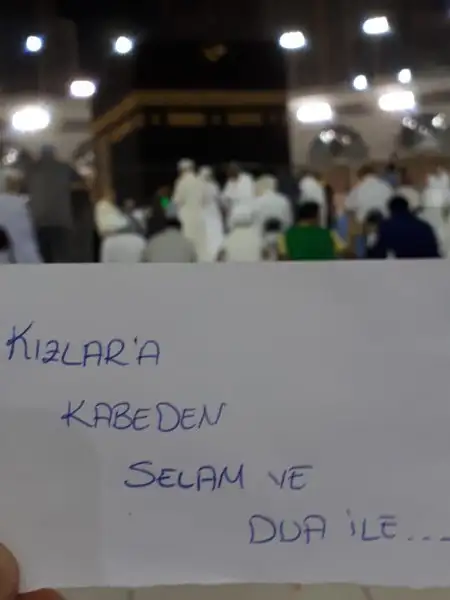 KIZLAR'A
KABEDEN
SELAM VE
DUA İLE...